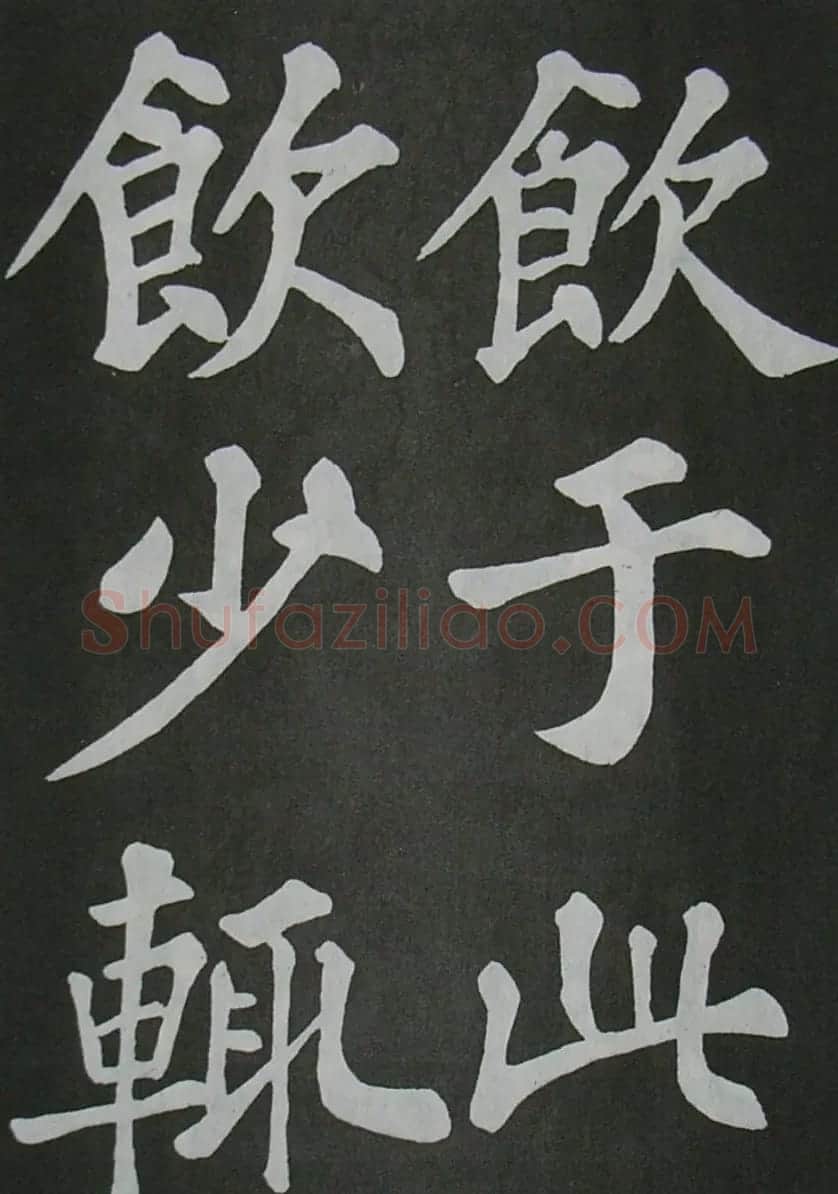 飲于此
飲少輒
Shufaziliao.COM